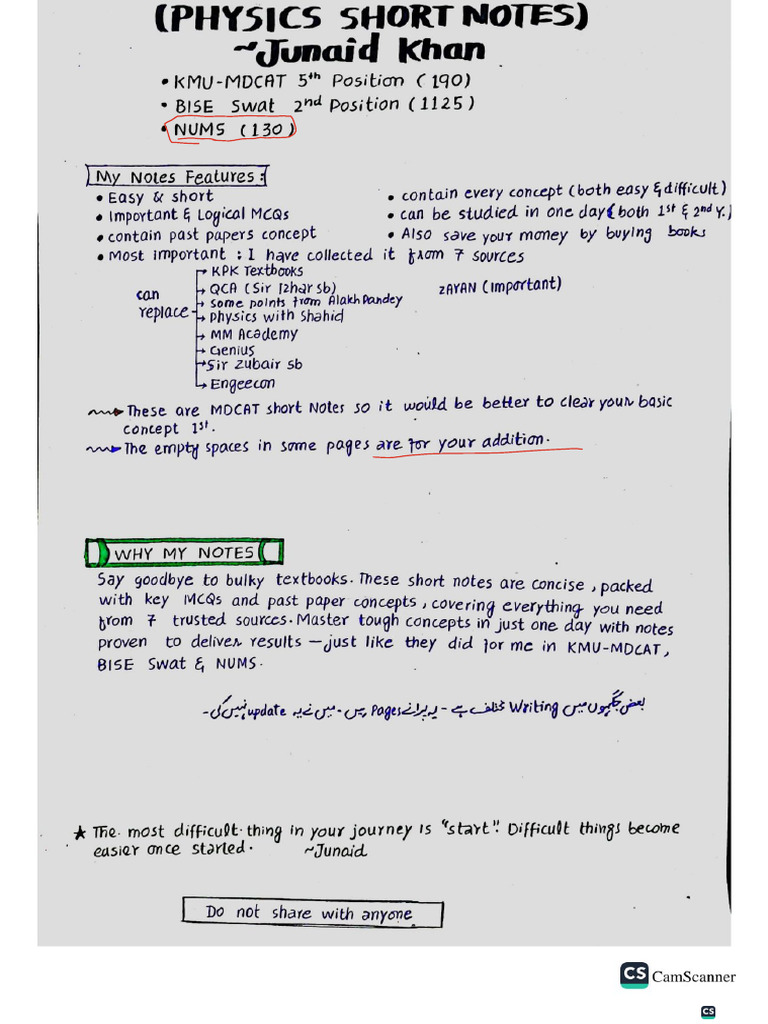 (PHYSICS SHORT NOTES)
~Junaid Khan
• KMU-MDCAT 5th Position (190)
• BISE Swat 2nd Position (1125)
• NUMS (130)
My Notes Features:
• Easy & short
• Important & Logical MCQs
• contain past papers concept
• contain every concept (both easy & difficult)
• can be studied in one day (both 1st & 2nd Y.)
• Also save your money by buying books
• Most important : I have collected it from 7 sources
can replace
→ KPK Textbooks
→ QCA (Sir Izhar sb)
→ Some points from Alakh Pandey
→ Physics with Shahid
→ MM Academy
→ Genius
→ Sir Zubair sb
→ Engeecon
ZAYAN (Important)
These are MDCAT short Notes so it would be better to clear your basic
concept 1st.
The empty spaces in some pages are for your addition.
WHY MY NOTES
Say goodbye to bulky textbooks. These short notes are concise, packed
with key MCQs and past paper concepts, covering everything you need
from 7 trusted sources. Master tough concepts in just one day with notes
proven to deliver results — just like they did for me in KMU-MDCAT,
BISE Swat & NUMS.
بعض جگہوں میں Writing مختلف ہے - یہ پرانے Pages ہیں - میں نے یہ update نہیں کی -
★ The most difficult thing in your journey is "start". Difficult things become
easier once started. ~Junaid
Do not share with anyone
CS CamScanner
CS